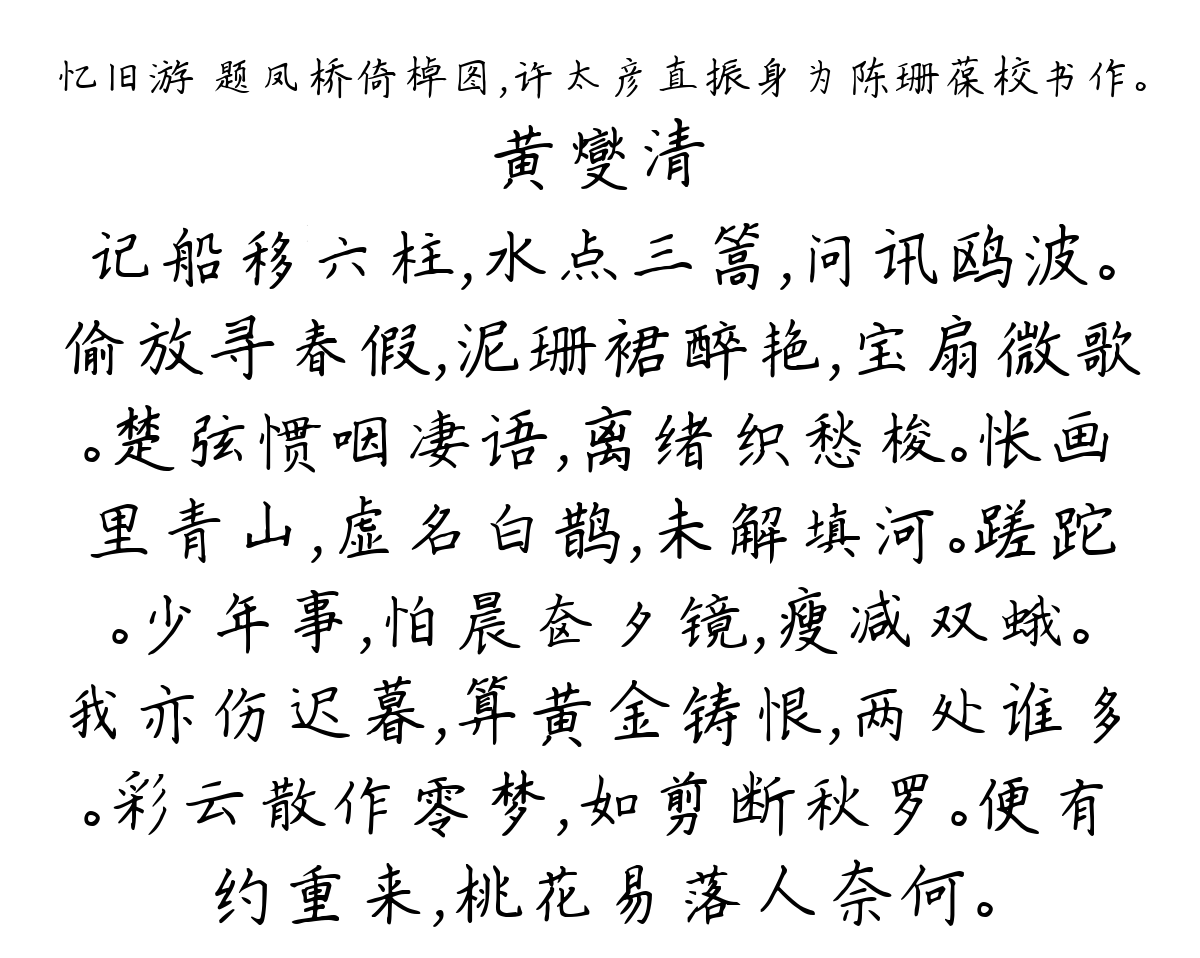 忆旧游 题凤桥倚棹图,许太彦直振身为陈珊葆校书作。
黄燮清
记船移六柱,水点三篙,问讯鸥波。
偷放寻春假,泥珊裙醉艳,宝扇微歌
。楚弦惯咽凄语,离绪织愁梭。怅画
里青山,虚名白鹊,未解填河。蹉跎
。少年事,怕晨奁夕镜,瘦减双蛾。
我亦伤迟暮,算黄金铸恨,两处谁多
。彩云散作零梦,如剪断秋罗。便有
约重来,桃花易落人奈何。